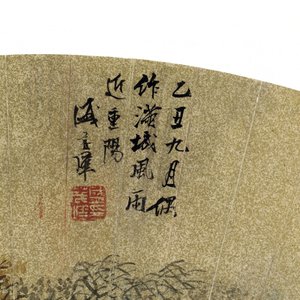 乙丑九月偶
作滿城風雨
近重陽